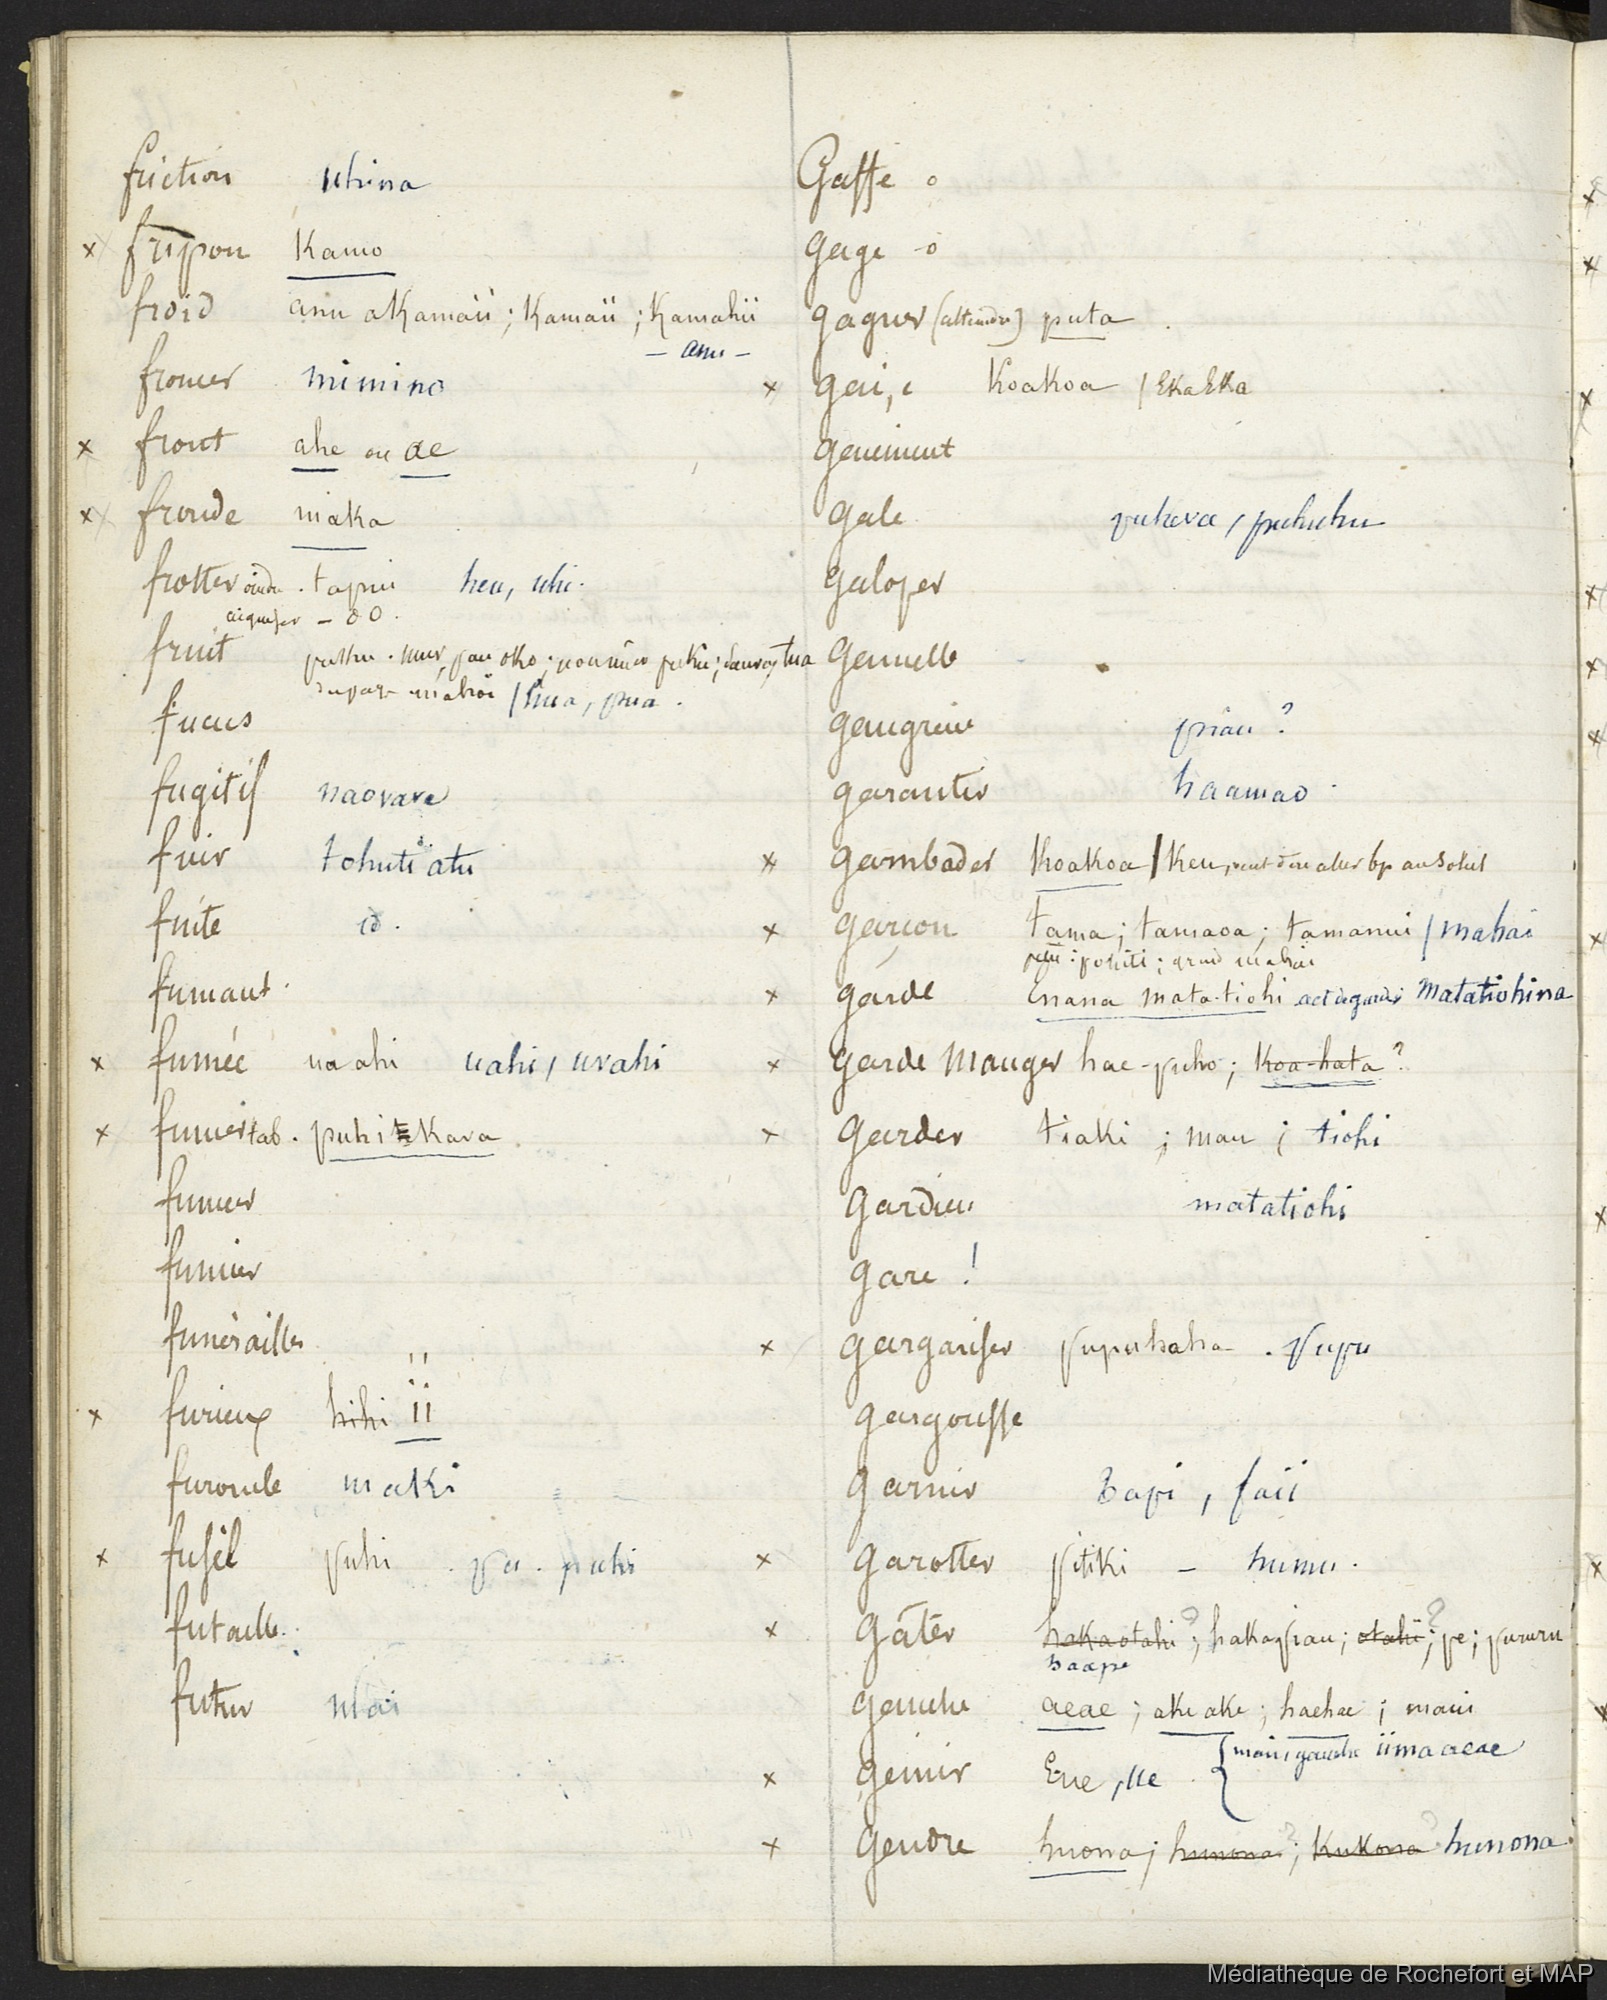 friction uhina
x fripon Kamo
froid anu akamaii ; Kamaii ; Kamahii
– anu –
froncer mimino
x front ahe ou ae
x fronde maka
frotter oindre . tapui heu, uhi .
aiguiser – oo .
fruit mur, pau oko ;
/ hua, pua .
fucus
fugitif naovave
fuir tohuti atu
fuite id .
fumant .
x fumée ua ahi uahi / uvahi
x fumer tab . puhi te Kava
fumer
fumier
funérailles
x furieux hihi ii
furoncle maki
x fusil puhi . pu . puhi
futaille .
futur mai
Gaffe o
Gage o
gagner (atteindre) puta .
x gai, e Koakoa / EkaEka
gaiement
gale puheva / puhuhu
galoper
gamelle
gangrène piau ?
garantir haamao .
x gambader Koakoa / Keu
x garçon tama ; tamaoa ; tamanui / mahai
petit : poiiti ; grand mahai
x garde Enana mata-tiohi act de garder matatiohina
x garde manger hae-puho ; Koa-hata ?
x garder tiaki ; mau ; tiohi
gardien matatiohi
gare !
x gargariser pupuhaha . pupu
gargousse
garnir tapi , faii
x garotter pitiki – humu .
x gâter hakaotahi ? ; hakapiau ; otahi ? ; pe ; pururu
haape
gauche aeae ; ake ake ; haehae ; maui
{ main gauche iima aeae
x gémir Eue , ue
x gendre huona ; hunona ? ; Kukona ? hunona
Médiathèque de Rochefort et MAP